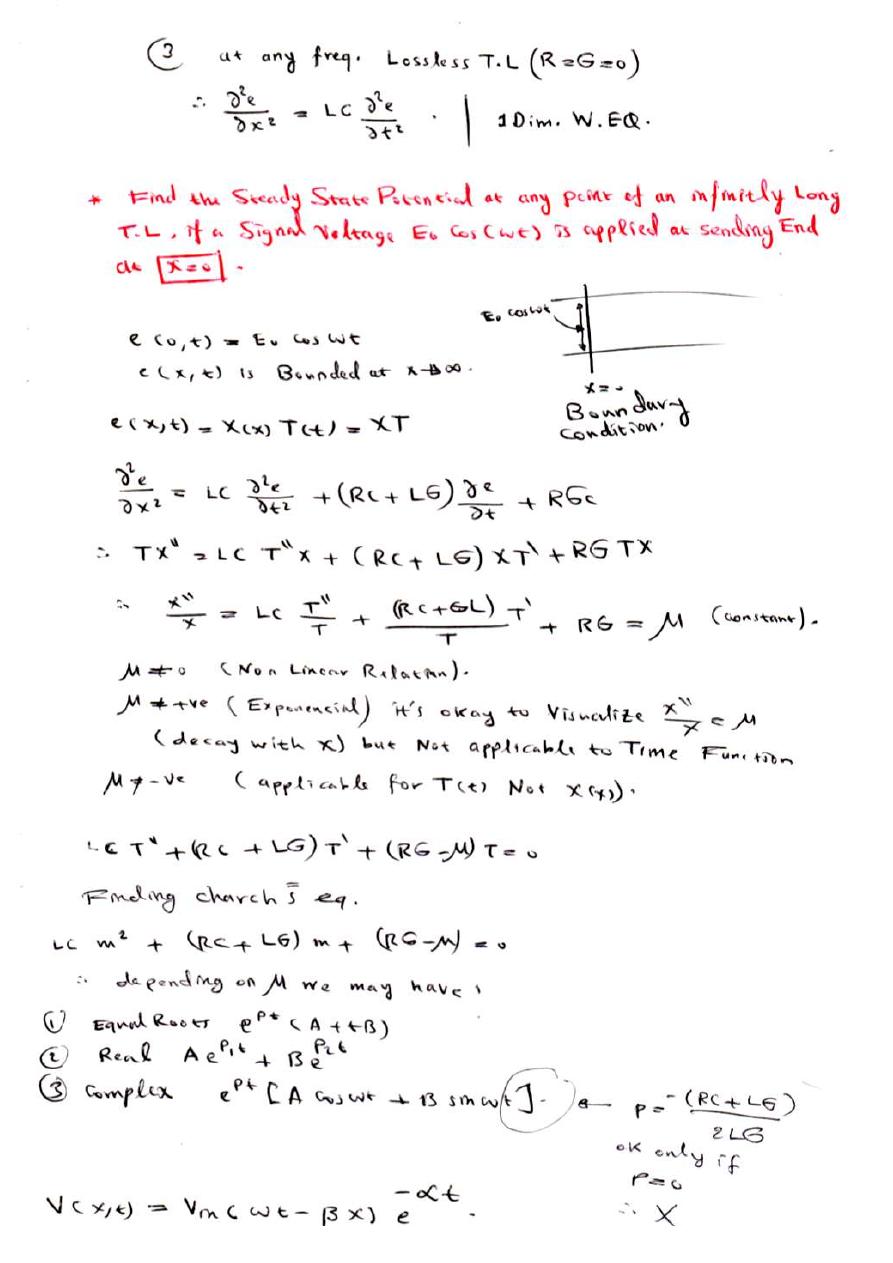 ③ at any freq. Lossless T.L (R=G=0)
∴ ∂²e/∂x² = LC ∂²e/∂t² . | 1 Dim. W.EQ.
* Find the Steady State Potential at any point of an infinitly Long
T.L, if a Signal Voltage E₀ Cos(wt) is applied at sending End
at x=0.
E₀ coswt
e(0,t) = E₀ cos wt
e(x,t) is Bounded at x→∞.
x=0
Boundary
condition.
e(x,t) = X(x) T(t) = XT
∂²e/∂x² = LC ∂²e/∂t² + (RC + LG) ∂e/∂t + RGe
∴ TX'' = LC T''X + (RC + LG) XT' + RG TX
∴ X''/X = LC T''/T + (RC+GL)/T T' + RG = M (constant).
M ≠ 0 (Non Linear Relation).
M ≠ +ve (Exponencial) it's okay to Visualize X''/X = M
(decay with x) but Not applicable to Time Function
M ≠ -ve (applicable for T(t) Not X(x)).
LC T'' + (RC + LG) T' + (RG - M) T = 0
Finding eq.
LC m² + (RC + LG) m + (RG - M) = 0
∴ depending on M we may have :
① Equal Roots e^{Pt} (A + tB)
② Real A e^{P₁t} + B e^{P₂t}
③ Complex e^{Pt} [A cos wt + B sin wt]. ← P = -(RC + LG)/2LG
ok only if
P=0
∴ X
V(x,t) = Vm (wt - βx) e^{-αt}.